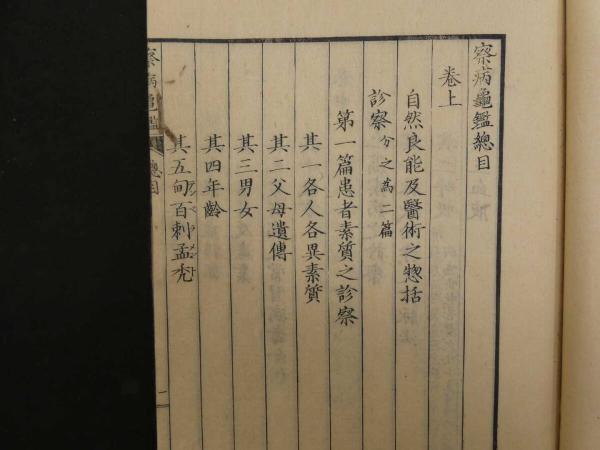 察病龜鑑總目
卷上
自然良能及醫術之惣括
診察分之為二篇
第一篇患者素質之診察
其一各人各異素質
其二父母遺傳
其三男女
其四年齡
其五甸百刺孟禿
察病龜鑑 總目 一